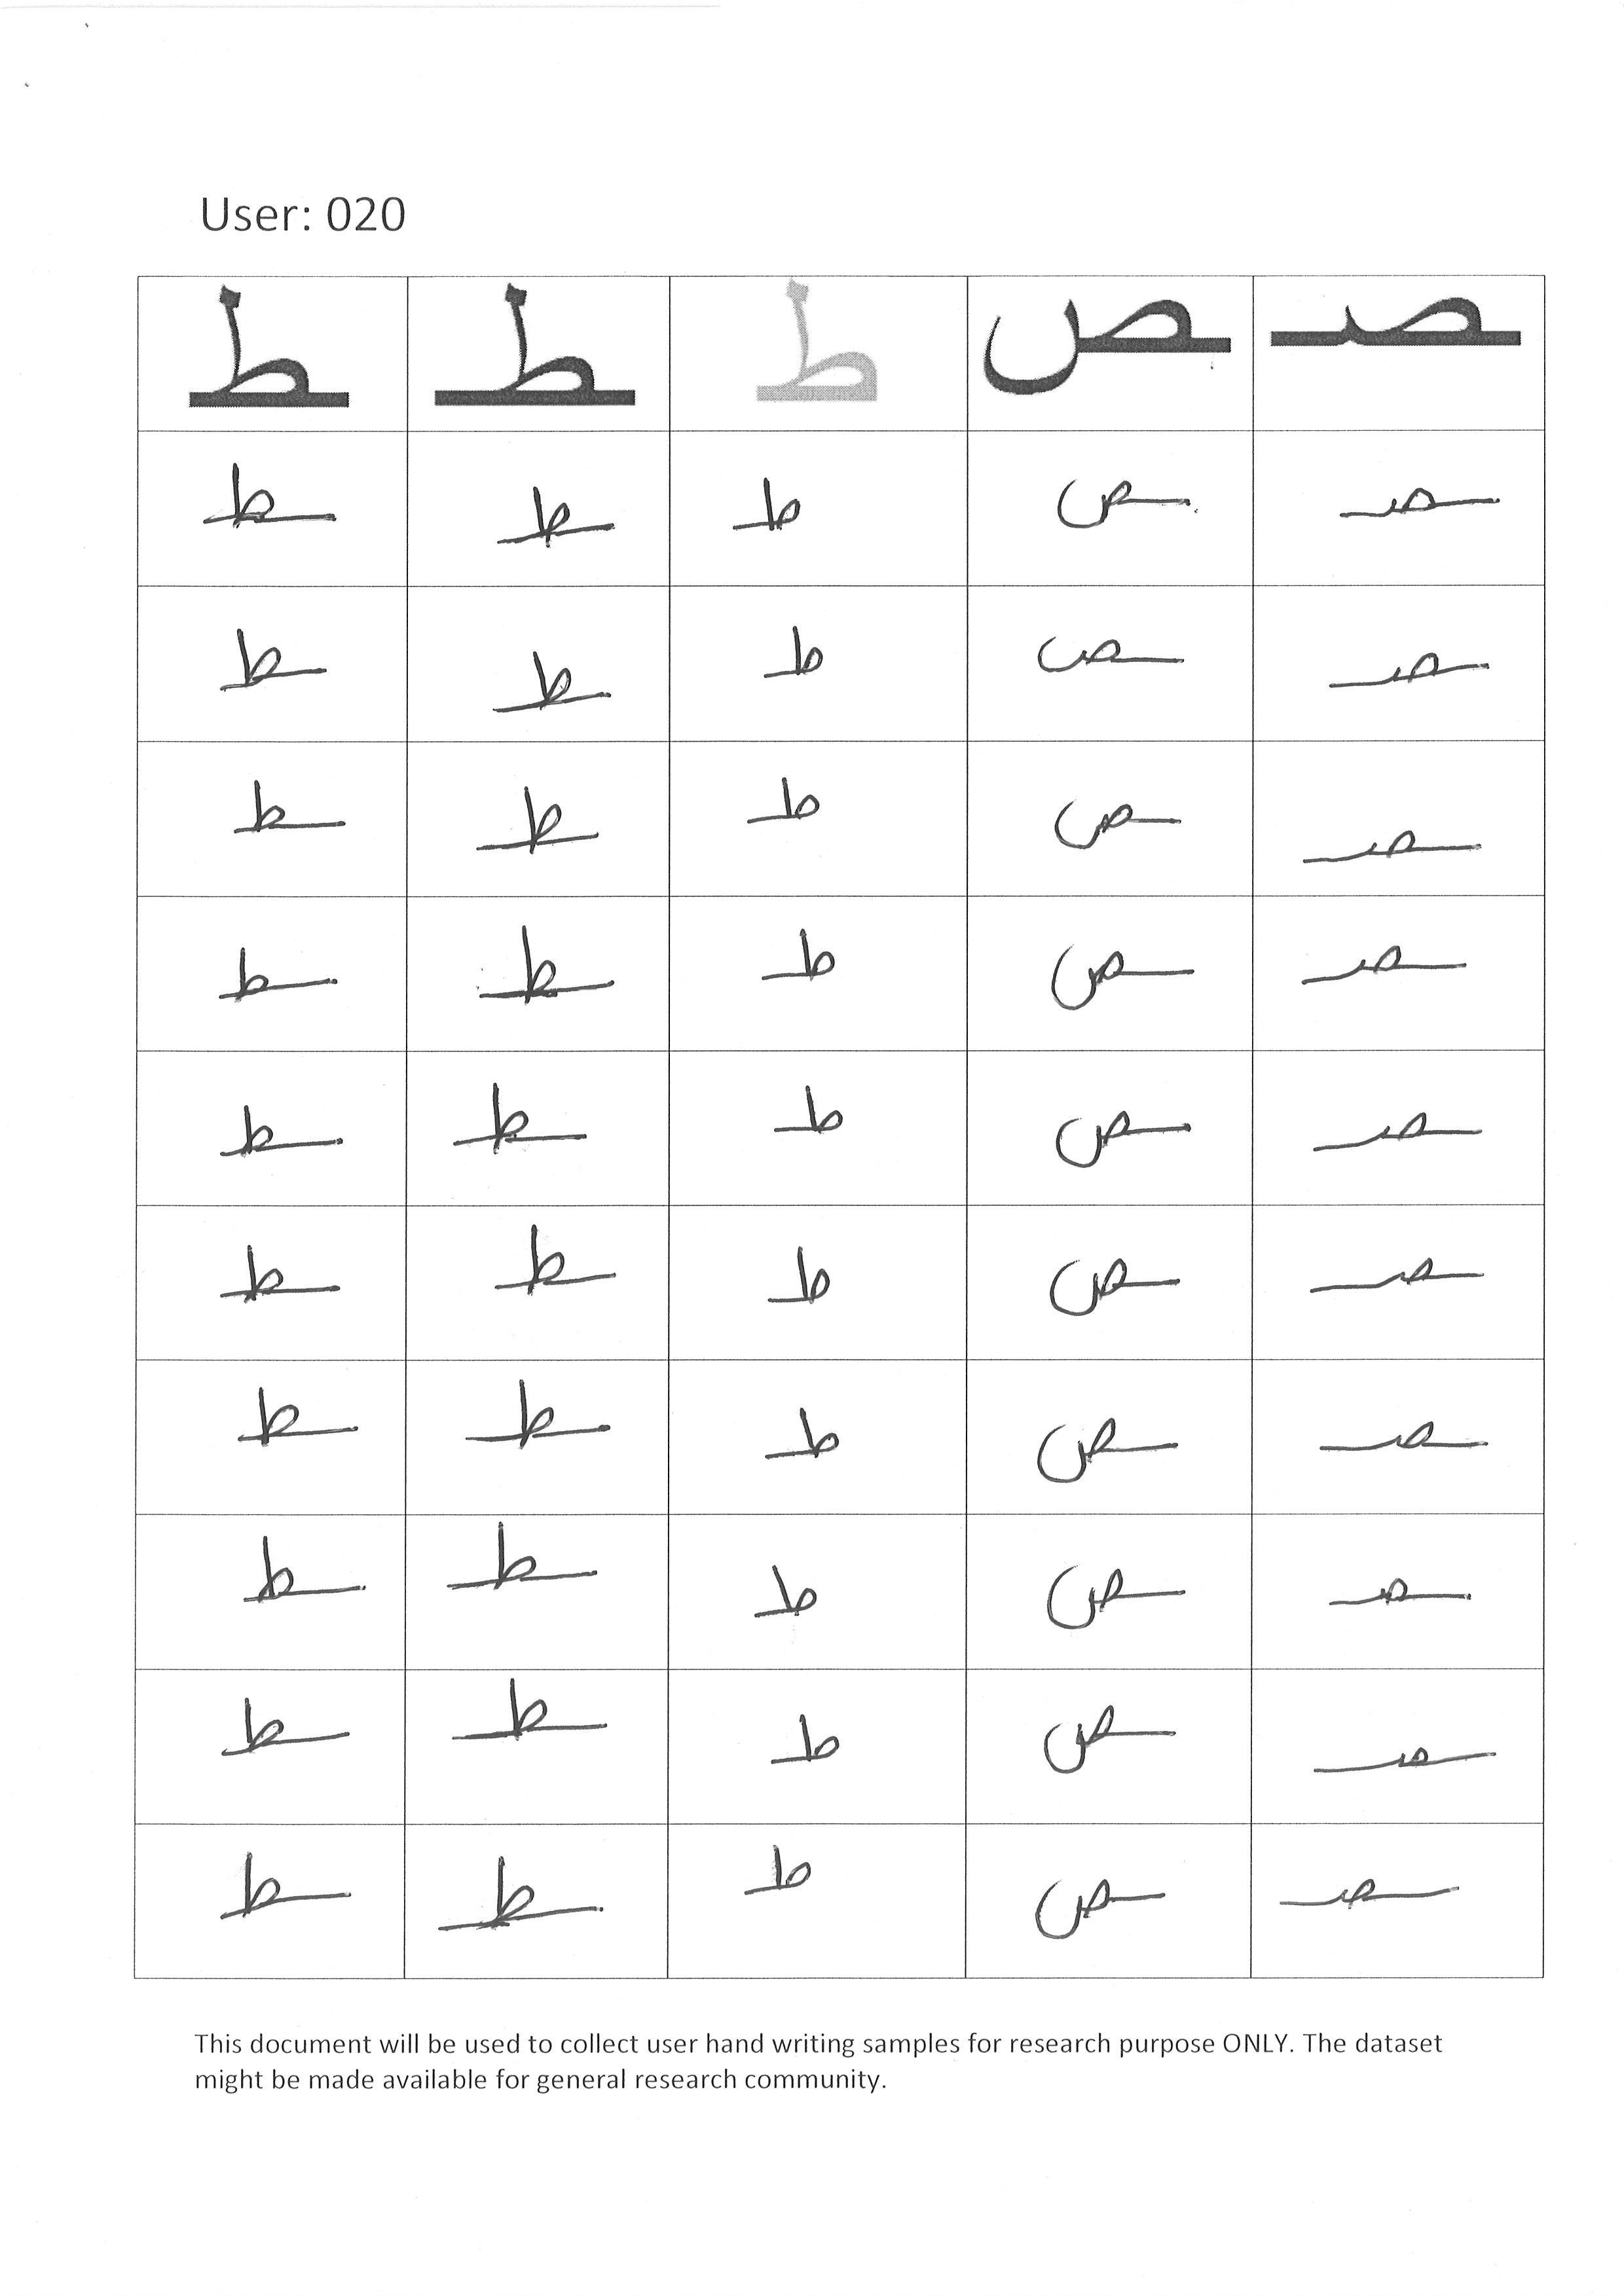 User: 020
ـصـ ـص طـ ـطـ ـط
ـصـ ـص طـ ـطـ ـط
ـصـ ـص طـ ـطـ ـط
ـصـ ـص طـ ـطـ ـط
ـصـ ـص طـ ـطـ ـط
ـصـ ـص طـ ـطـ ـط
ـصـ ـص طـ ـطـ ـط
ـصـ ـص طـ ـطـ ـط
ـصـ ـص طـ ـطـ ـط
ـصـ ـص طـ ـطـ ـط
ـصـ ـص طـ ـطـ ـط
This document will be used to collect user hand writing samples for research purpose ONLY. The dataset
might be made available for general research community.